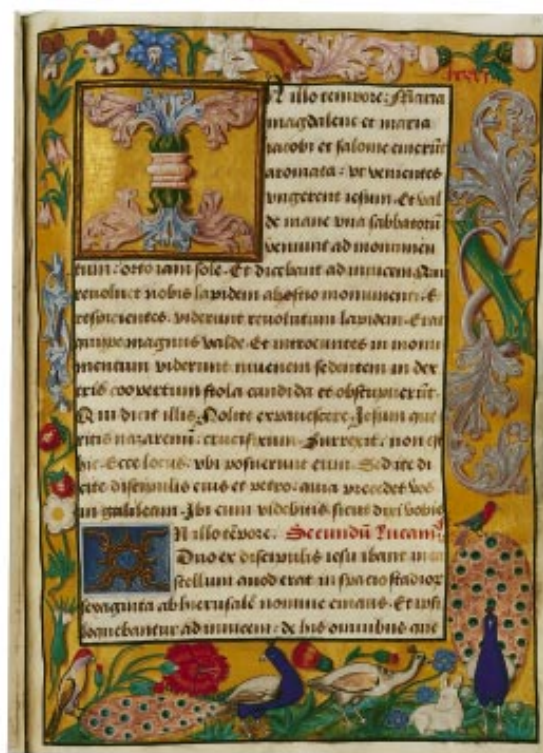 N illo tempore: Maria
magdalene et maria
iacobi et salome emerūt
aromata: vt venientes
vngerent iesum. Et val
de mane vna sabbatorū
veniunt ad monumen
tum: orto iam sole. Et dicebant ad inuicem. Quis
reuoluet nobis lapidem ab ostio monumenti. Et
respicientes. viderunt reuolutum lapidem. Erat
quippe magnus valde. Et introeuntes in monu
mentum viderunt iuuenem sedentem in dex
tris coopertum stola candida et obstupuerūt.
Qui dicit illis. Nolite expauescere. Jesum que
ritis nazarenū. crucifixum. Surrexit: non est
hic. Ecce locus: vbi posuerunt eum. Sed ite di
cite discipulis eius et petro: quia precedet vos
in galileam. Ibi eum videbitis sicut dixi vobis
N illo tēpore. Secundū Lucam
Duo ex discipulis iesu ibant in ca
stellum quod erat in spatio stadior
sexaginta ab hierusalē nomine emaus. Et ipsi
loquebantur ad inuicem: de his omnibus que